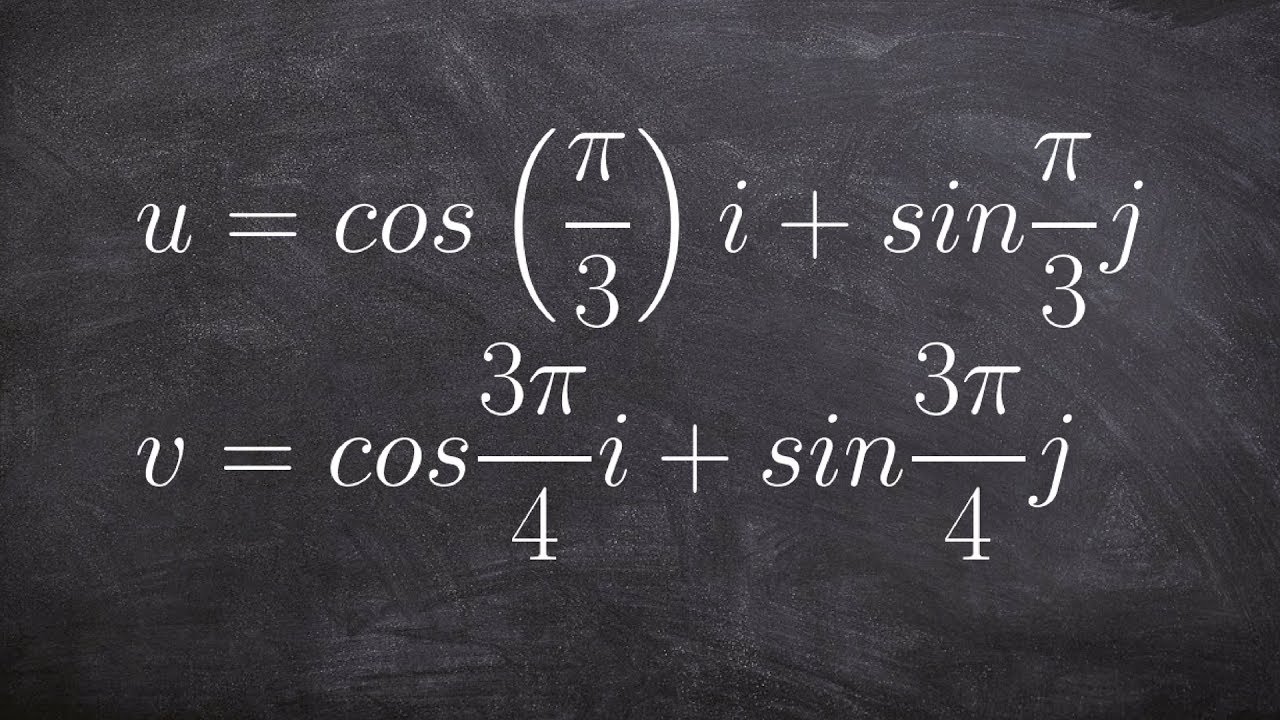 u = cos (π/3) i + sin π/3 j
v = cos 3π/4 i + sin 3π/4 j